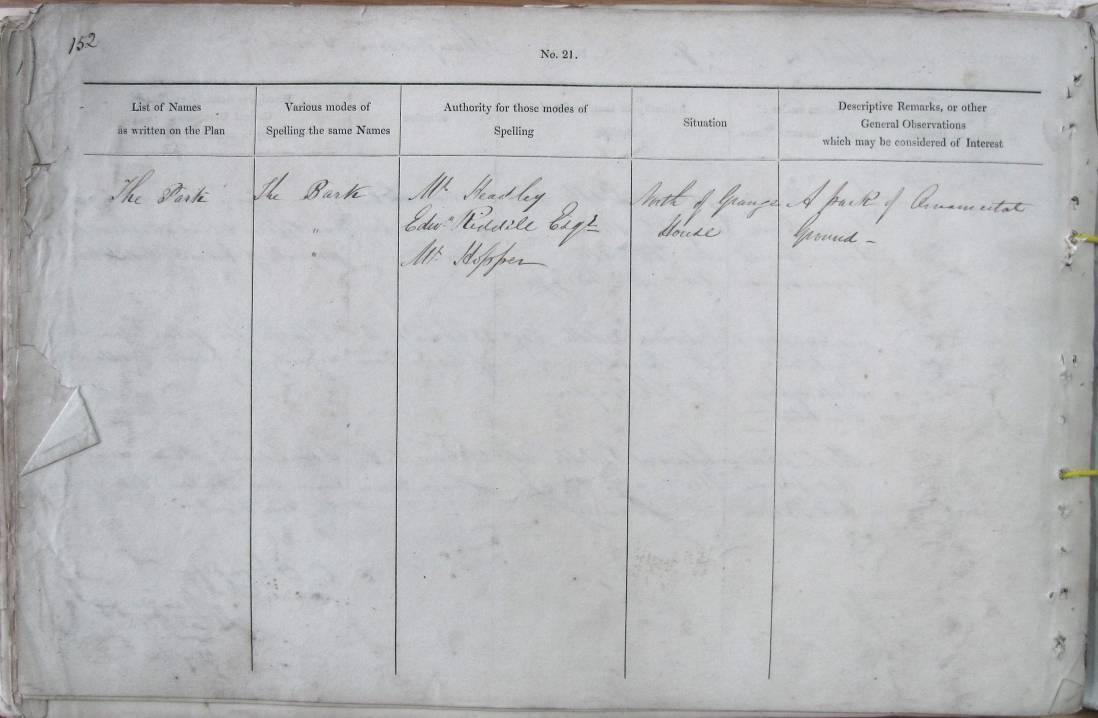 152
No. 21.
List of Names
as written on the Plan
Various modes of
Spelling the same Names
Authority for those modes of
Spelling
Situation
Descriptive Remarks, or other
General Observations
which may be considered of Interest
The Park
The Park
"
"
Mr. Headley
Edwd. Riddell Esqr.
Mr. Hopper
North of Grange
House
A park of Ornamental
Ground -